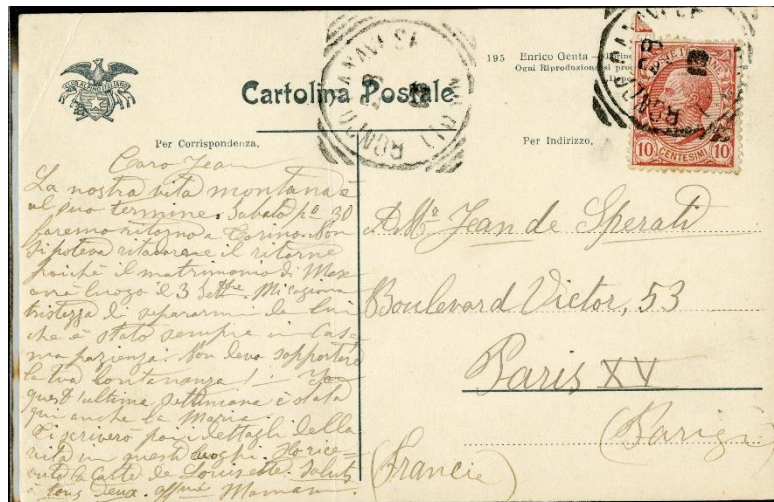 CLUB ALPINO ITALIANO
Cartolina Postale
195 Enrico Genta
Ogni Riproduzione
Per Corrispondenza,
Per Indirizzo,
RONCO CANAVESE
POSTE ITALIANE
10 CENTESIMI 10
Caro Jean
La nostra vita montana è
al suo termine. Sabato po 30
faremo ritorno a Torino. Non
si poteva ritardare il ritorno
poichè il matrimonio di Max
avrà luogo il 3 Settbre. Mi cagiona
tristezza di separarmi da lui
che è stato sempre in Cas-
ma pazienza. Non devo sopportare
la tua lontananza!
quest'ultima settimana è stata
qui anche la Maria.
Ti scriverò poi i dettagli della
vita in questi luoghi. Ho rice-
vuto la Carte de Louisette. Saluts
à tous deux. affma Maman.
A Mo Jean de Sperati
Boulevard Victor, 53
Paris XV
(Parigi)
(Francia)